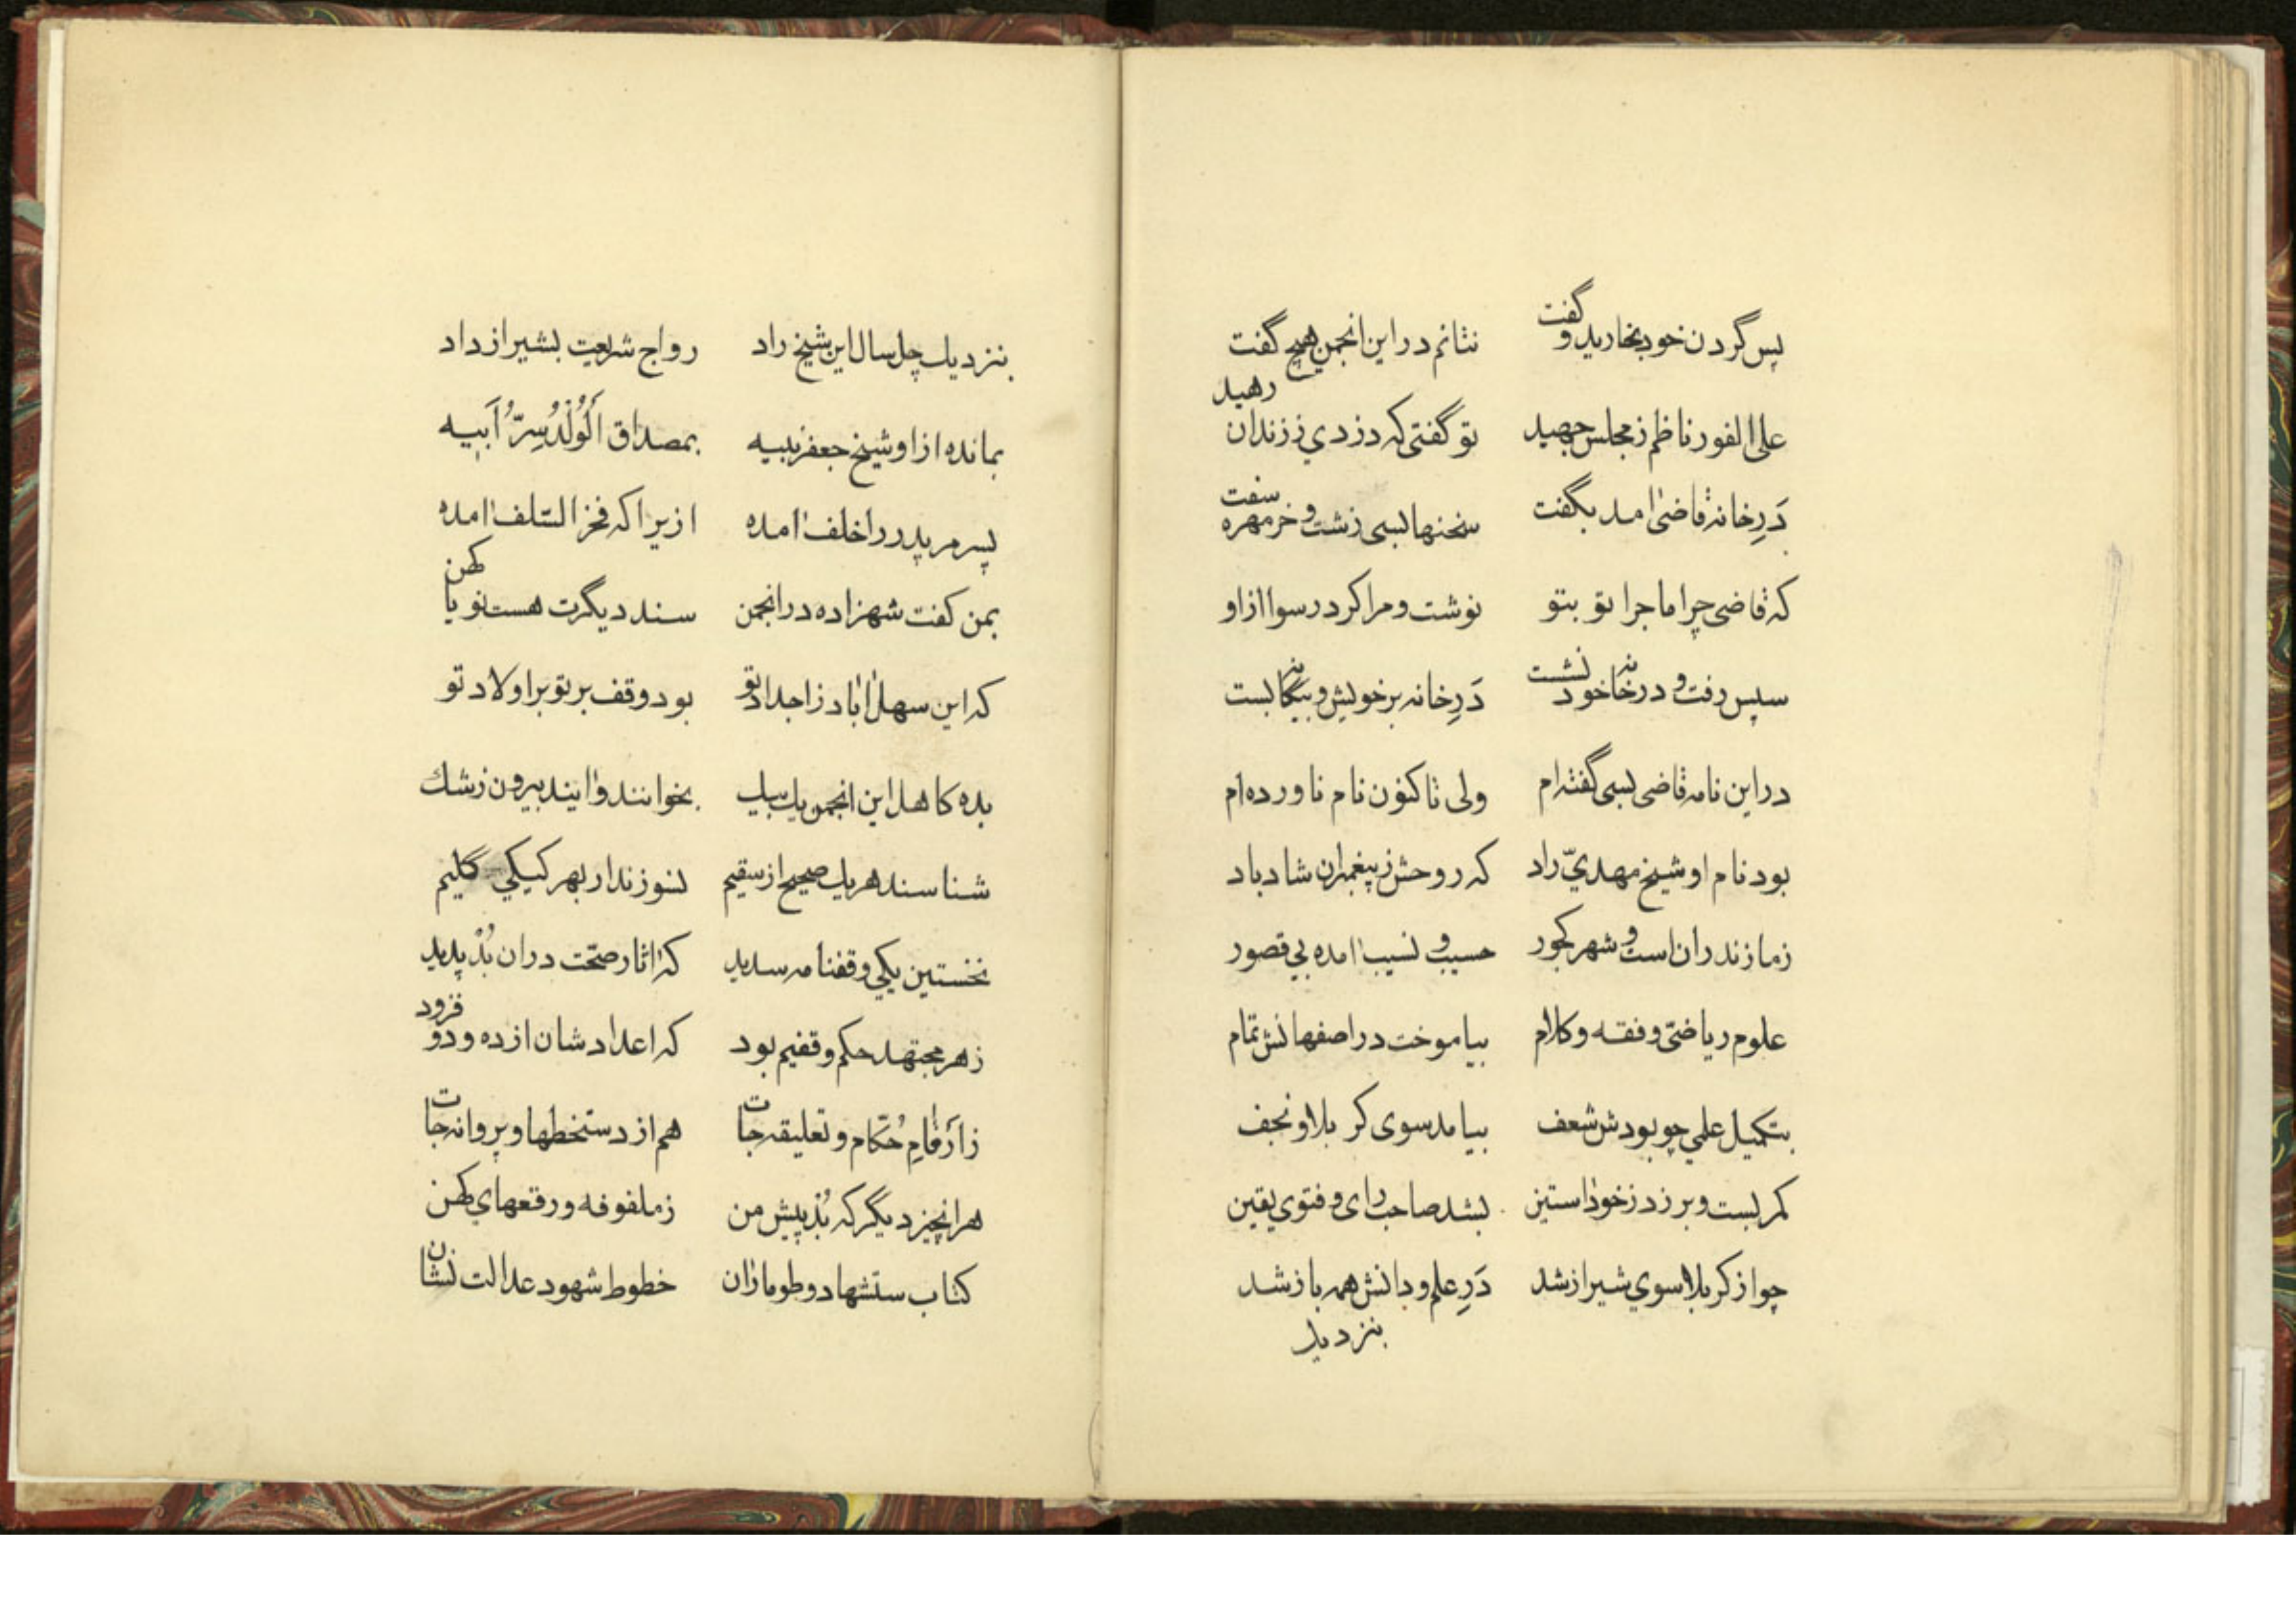 پس گردن خود بخارید و گفت نتانم در این انجمن هیچ گفت
علی الفور ناظم ز مجلس جهید تو گفتی که دزدی ز زندان رهید
دَرِ خانهٔ قاضی آمد بگفت سخنها بسی زشت و خرمهره سفت
که قاضی چرا ماجرا تو بتو نوشت و مرا کرد رسوا ازاو
سپس رفت و در خانهٔ خود نشست دَرِ خانه بر خویش و بیگانه بست
در این نامه قاضی بسی گفته‌ام ولی تاکنون نام ناورده‌ام
بود نام او شیخ مهدیّ راد که روحش ز پیغمبران شاد باد
ز مازندران است و شهر کجور حسیب و نسیب آمده بی قصور
علوم ریاضیّ و فقه و کلام بیاموخت در اصفهانش تمام
بتکمیل علمی چو بودش شعف بیامد سوی کربلا و نجف
کمر بست و بر زد ز خود آستین بشد صاحب رای و فتوی یقین
چو از کربلا سوی شیراز شد دَرِ علم و دانش همه باز شد
بنزدیک
بنزدیک چل سال این شیخ راد رواج شریعت بشیراز داد
بمانده از او شیخ جعفر نبیه بمصداق اَلْوَلَدُ سِرُّ اَبیه
پسر مر پدر را خلف آمده ازیرا که فخر السّلف آمده
بمن گفت شهزاده در انجمن سند دیگرت هست نو یا کهن
که این سهل آباد ز اجداد تو بود وقف بر تو بر اولاد تو
بده کاهل این انجمن یک بیک بخوانند و آیند بیرون ز شک
شناسند هر یک صحیح از سقیم نسوزند از بهر کیکی گلیم
نخستین یکی وقفنامه سدید که آثار صحّت در آن بُدْ پدید
ز هر مجتهد حکم وقفیم بود که اعدادشان از ده و دو فزود
ز اَرقامِ حُکّام و تعلیقه جات هم از دستخطها و پروانه جات
هر آنچیز دیگر که بُدْ پیش من ز ملفوفه و رقعهای کهن
کتاب ستشهاد و طومار آن خطوط شهود عدالت نشان